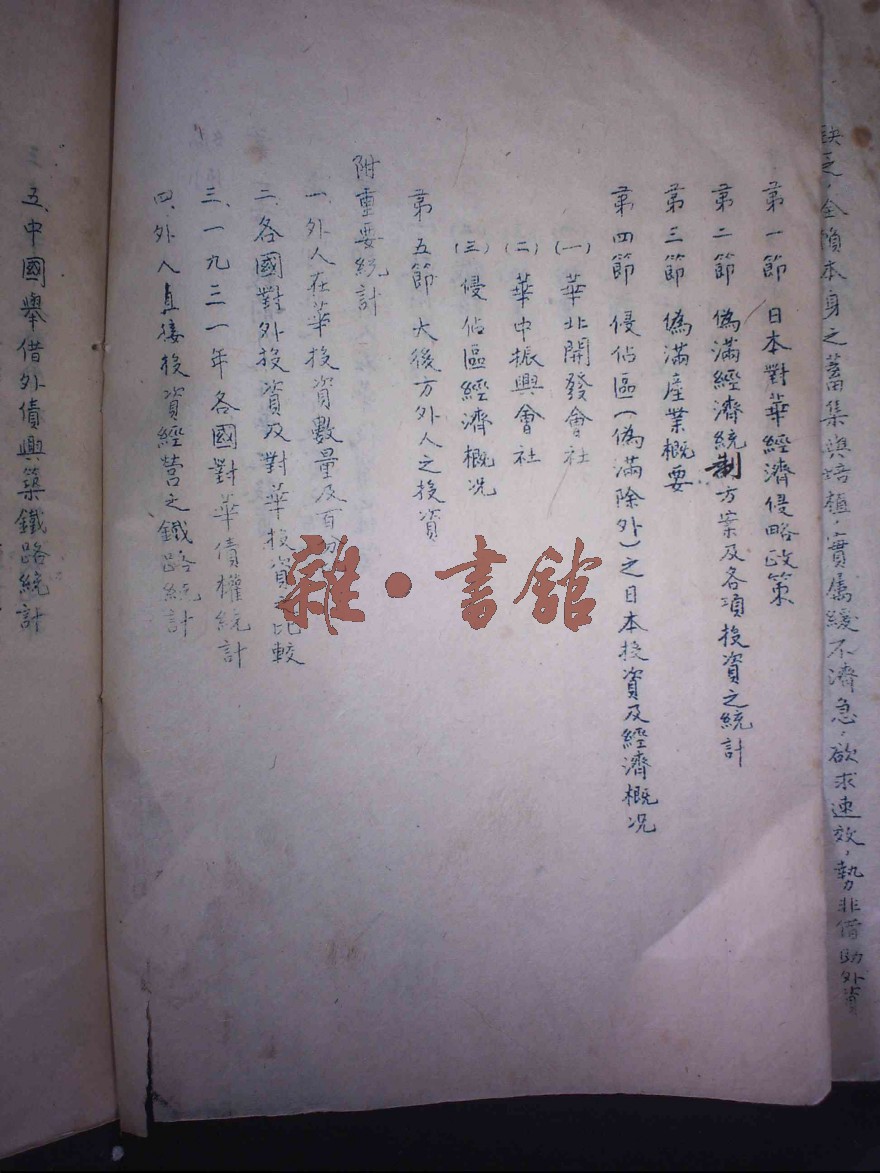 缺乏，全憤本身之蓄集與培植，實屬緩不濟急，欲求速效，勢非借助外資
第一節 日本對華經濟侵略政策
第二節 偽滿經濟統制方案及各項投資之統計
第三節 偽滿產業概要
第四節 侵佔區（偽滿除外）之日本投資及經濟概况
（一）華北開發會社
（二）華中振興會社
（三）侵佔區經濟概况
第五節 大後方外人之投資
附重要統計
一、外人在華投資數量及百分
二、各國對外投資及對華投資之比較
三、一九三一年各國對華債權統計
四、外人直接投資經營之鐵路統計
五、中國舉借外債興築鐵路統計
雜·書館